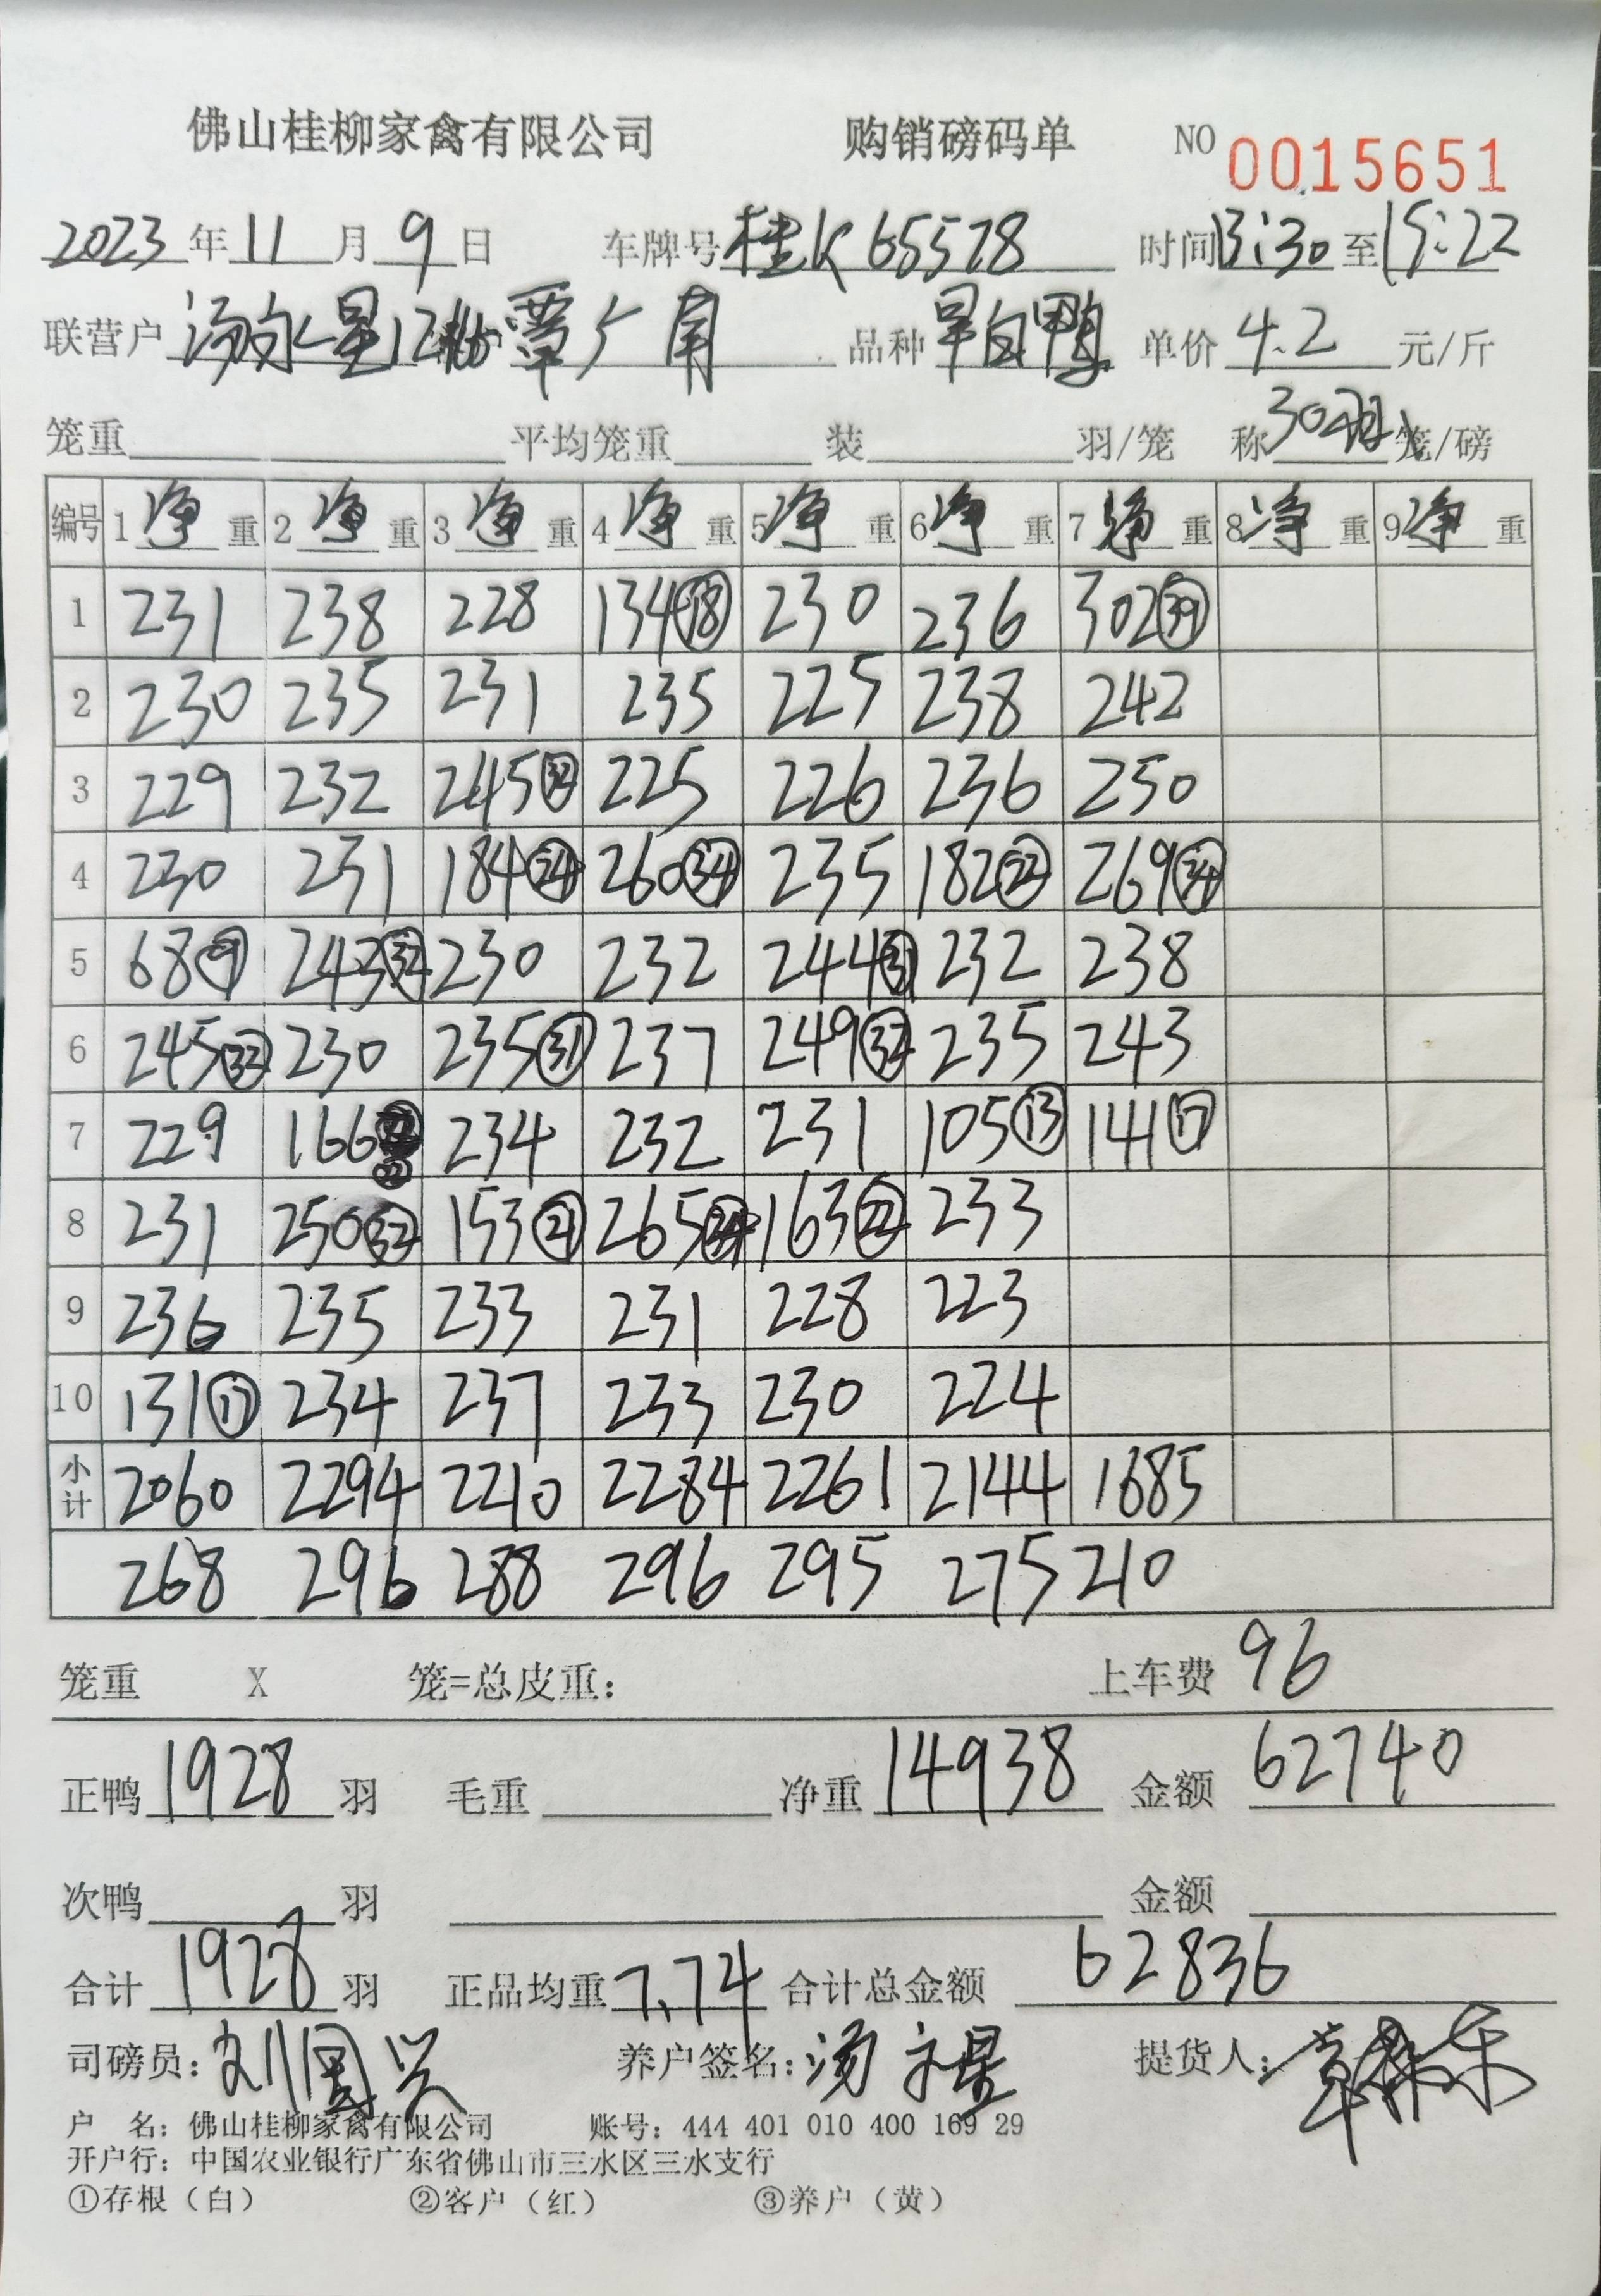 佛山桂柳家禽有限公司 购销磅码单 NO 0015651
2023年11月9日 车牌号 桂K65578 时间 13:30 至 15:22
联营户 汤永星12栋 覃广南 品种 旱白鸭 单价 4.2 元/斤
笼重 平均笼重 装 羽/笼 称 30羽 笼/磅
编号 1 净 重 2 净 重 3 净 重 4 净 重 5 净 重 6 净 重 7 净 重 8 净 重 9 净 重
1 231 238 228 134⑱ 230 236 302㊴
2 230 235 231 235 225 238 242
3 229 232 245㉜ 225 226 236 250
4 230 231 184㉔ 260㉞ 235 182㉒ 269㉞
5 68⑨ 243㉜ 230 232 244㉛ 232 238
6 245㉜ 230 235㉛ 237 249㉜ 235 243
7 229 166 234 232 231 105⑬ 141⑰
8 231 250㉜ 153㉑ 265㉞ 163㉒ 233
9 236 235 233 231 228 223
10 131⑰ 234 237 233 230 224
小计 2060 2294 2210 2284 2261 2144 1685
268 296 288 296 295 275 210
笼重 X 笼=总皮重: 上车费 96
正鸭 1928 羽 毛重 净重 14938 金额 62740
次鸭 羽 金额
合计 1928 羽 正品均重 7.74 合计总金额 62836
司磅员: 刘国兴 养户签名: 汤永星 提货人:
户 名: 佛山桂柳家禽有限公司 账号: 444 401 010 400 169 29
开户行: 中国农业银行广东省佛山市三水区三水支行
①存根（白） ②客户（红） ③养户（黄）